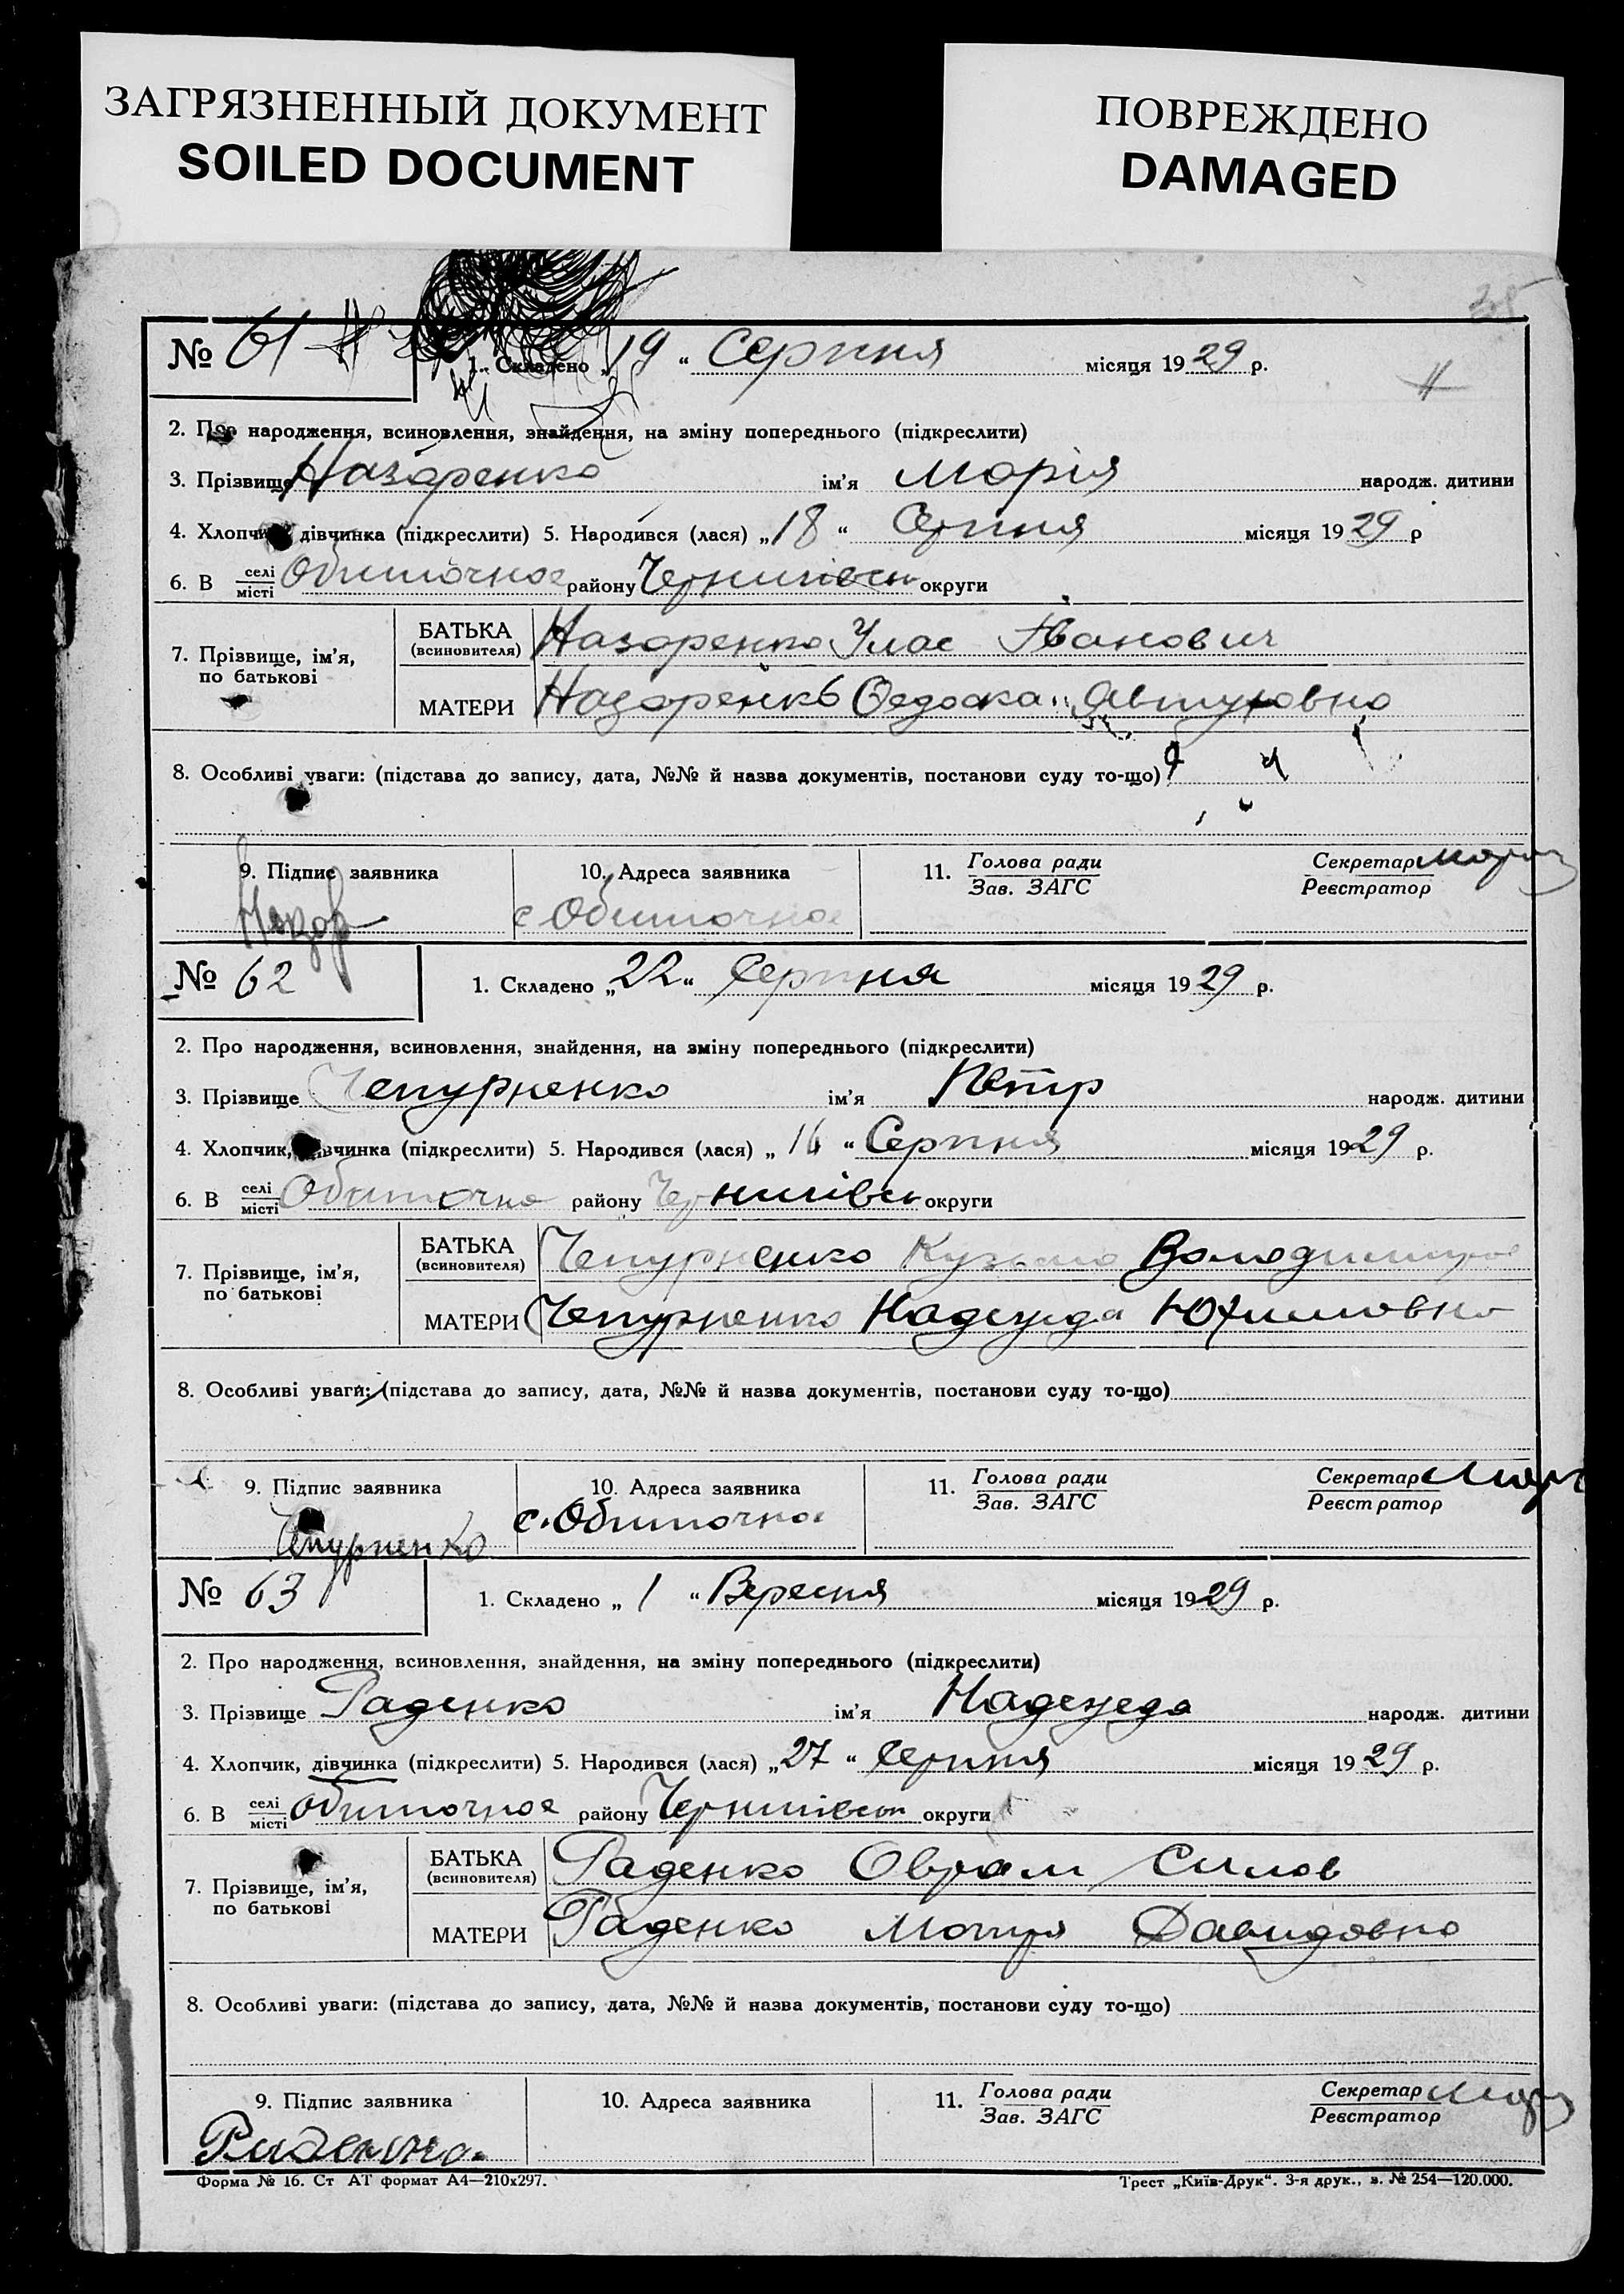 ЗАГРЯЗНЕННЫЙ ДОКУМЕНТ
SOILED DOCUMENT
ПОВРЕЖДЕНО
DAMAGED
№ 61 1. Складено „19“ Серпня місяця 1929 р.
2. Про народження, всиновлення, знайдення, на зміну попереднього (підкреслити)
3. Прізвище Назаренко ім'я Марія народж. дитини
4. Хлопчик, дівчинка (підкреслити) 5. Народився (лася) „18“ Серпня місяця 1929 р
6. В селі/місті Обиточное району Чернигівськ округи
7. Прізвище, ім'я, по батькові
БАТЬКА (всиновителя) Назаренко Улас Іванович
МАТЕРИ Назаренко Федоска Автуховна
8. Особливі уваги: (підстава до запису, дата, №№ й назва документів, постанови суду то-що)
9. Підпис заявника 10. Адреса заявника 11. Голова ради Секретар Мороз
Зав. ЗАГС Реєстратор
Назар с Обиточное
№ 62 1. Складено „22“ Серпня місяця 1929 р.
2. Про народження, всиновлення, знайдення, на зміну попереднього (підкреслити)
3. Прізвище Чепурненко ім'я Петр народж. дитини
4. Хлопчик, дівчинка (підкреслити) 5. Народився (лася) „16“ Серпня місяця 1929 р.
6. В селі/місті Обиточно району Чернигівськ округи
7. Прізвище, ім'я, по батькові
БАТЬКА (всиновителя) Чепурненко Кузьма Володимиров
МАТЕРИ Чепурненко Надежда Юхимовна
8. Особливі уваги: (підстава до запису, дата, №№ й назва документів, постанови суду то-що)
9. Підпис заявника 10. Адреса заявника 11. Голова ради Секретар Мороз
Зав. ЗАГС Реєстратор
Чепурненко с. Обиточное
№ 63 1. Складено „1“ Вересня місяця 1929 р.
2. Про народження, всиновлення, знайдення, на зміну попереднього (підкреслити)
3. Прізвище Раденко ім'я Надежда народж. дитини
4. Хлопчик, дівчинка (підкреслити) 5. Народився (лася) „27“ Серпня місяця 1929 р.
6. В селі/місті Обиточное району Чернигівськ округи
7. Прізвище, ім'я, по батькові
БАТЬКА (всиновителя) Раденко Оврам Силов
МАТЕРИ Раденко Мотря Давидовна
8. Особливі уваги: (підстава до запису, дата, №№ й назва документів, постанови суду то-що)
9. Підпис заявника 10. Адреса заявника 11. Голова ради Секретар Мороз
Зав. ЗАГС Реєстратор
Форма № 16. Ст АТ формат А4—210х297. Трест „Київ-Друк“. 3-я друк., з. № 254—120.000.